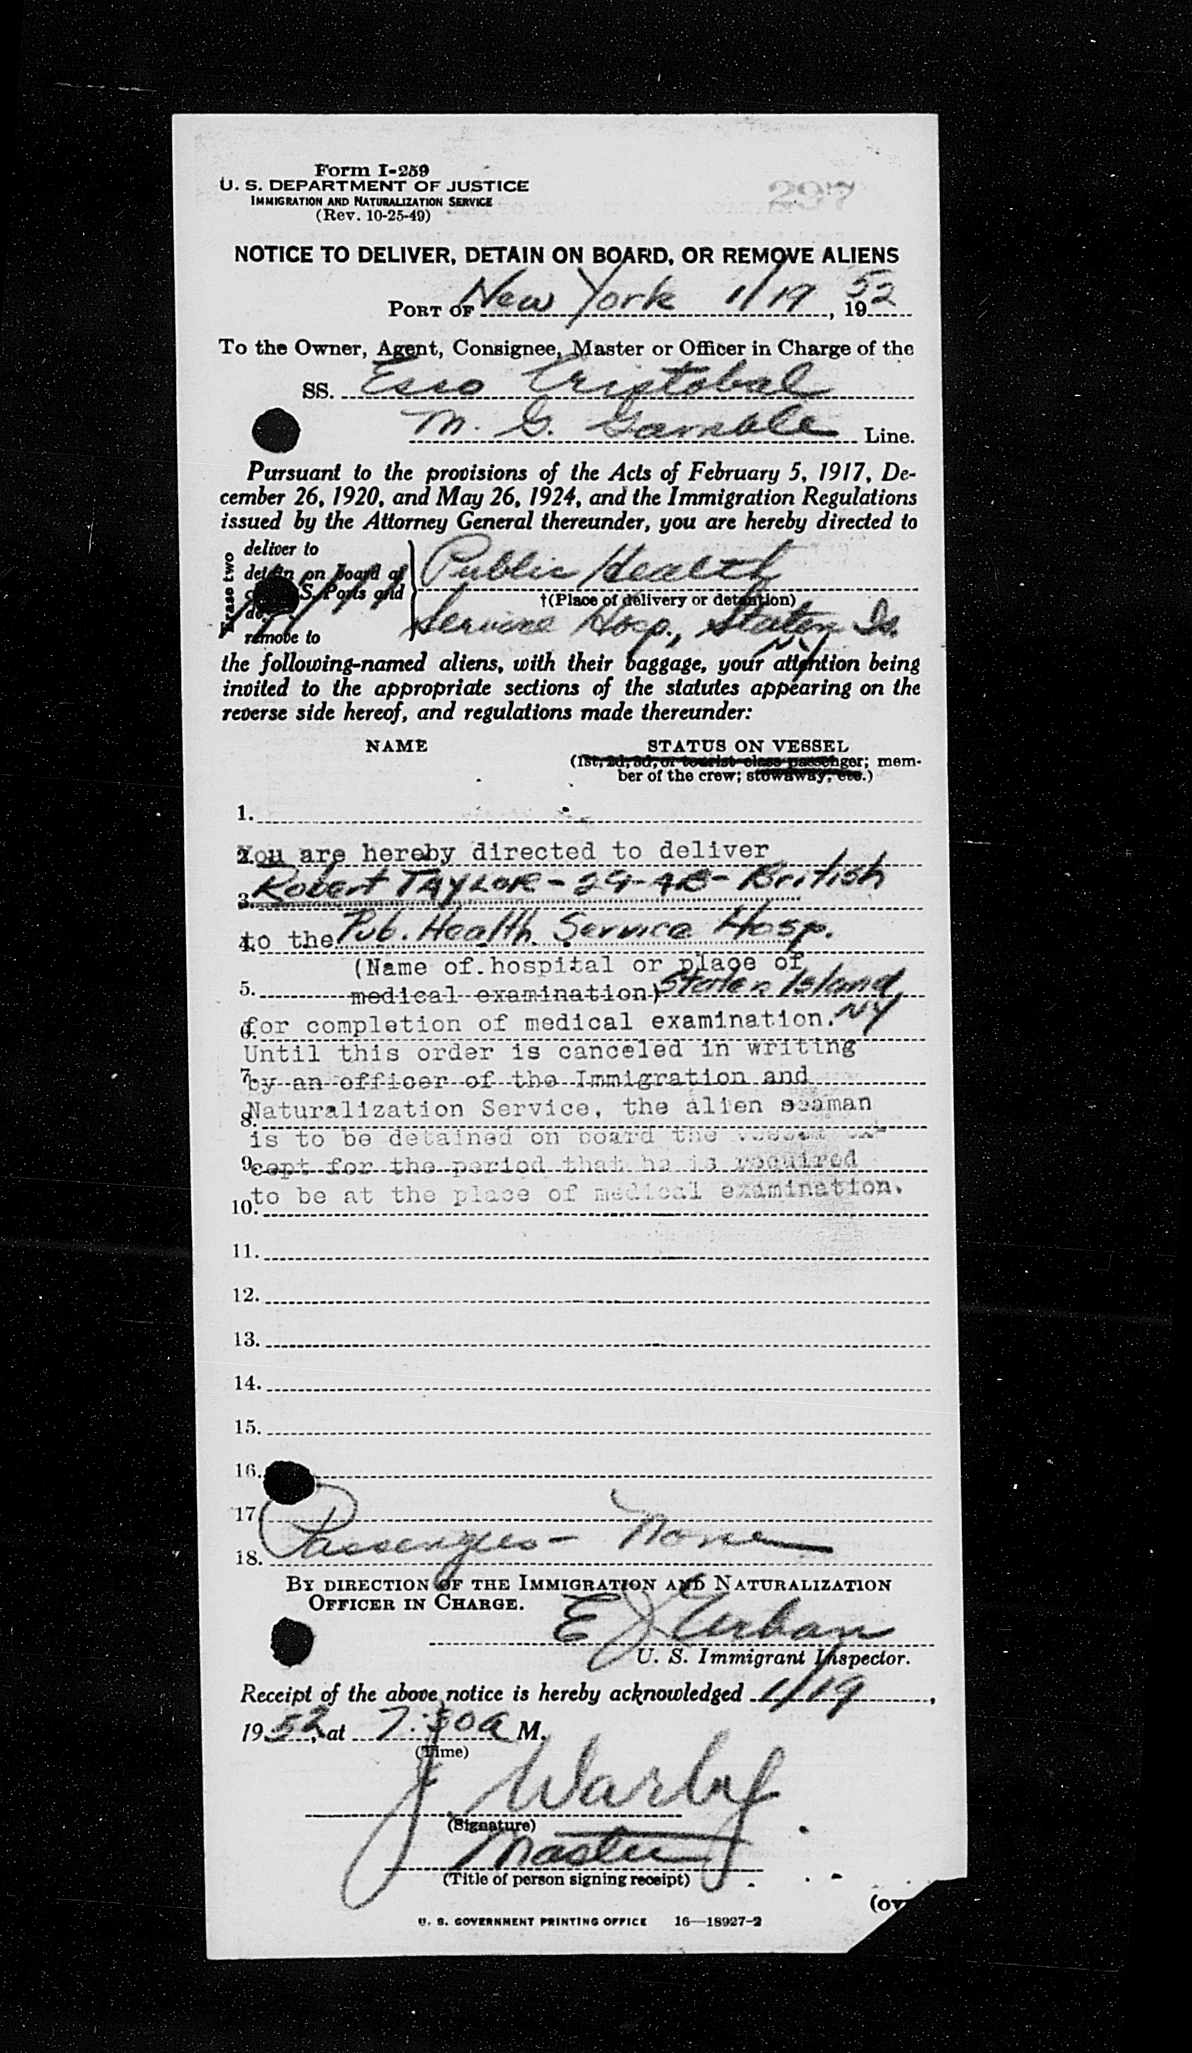 Form I-259
U. S. DEPARTMENT OF JUSTICE
IMMIGRATION AND NATURALIZATION SERVICE
(Rev. 10-25-49)
297
NOTICE TO DELIVER, DETAIN ON BOARD, OR REMOVE ALIENS
PORT OF New York 1/19, 1952
To the Owner, Agent, Consignee, Master or Officer in Charge of the
SS. Esso Cristobal
M. G. Gamble Line.
Pursuant to the provisions of the Acts of February 5, 1917, De-
cember 26, 1920, and May 26, 1924, and the Immigration Regulations
issued by the Attorney General thereunder, you are hereby directed to
Erase two
deliver to
detain on board at
S. Ports and
remove to
Public Health
†(Place of delivery or detention)
Service Hosp., Staten Is.
N.Y.
the following-named aliens, with their baggage, your attention being
invited to the appropriate sections of the statutes appearing on the
reverse side hereof, and regulations made thereunder:
NAME
STATUS ON VESSEL
(1st, 2d, 3d, or tourist class passenger; mem-
ber of the crew; stowaway, etc.)
1.
2. You are hereby directed to deliver
3. Robert TAYLOR - 29 - AB - British
4. to the Pub. Health Service Hosp.
(Name of hospital or place of
5. medical examination) Staten Island
NY
6. for completion of medical examination.
Until this order is canceled in writing
7. by an officer of the Immigration and
8. Naturalization Service, the alien seaman
is to be detained on board the vessel ex-
9. cept for the period that he is required
10. to be at the place of medical examination.
11.
12.
13.
14.
15.
16.
17.
Passengers - None
18.
BY DIRECTION OF THE IMMIGRATION AND NATURALIZATION
OFFICER IN CHARGE.
E J Urban
U. S. Immigrant Inspector.
Receipt of the above notice is hereby acknowledged 1/19,
1952, at 7:30 a M.
(Time)
J Warby
(Signature)
Master
(Title of person signing receipt)
(ov
U. S. GOVERNMENT PRINTING OFFICE 16—18927-2